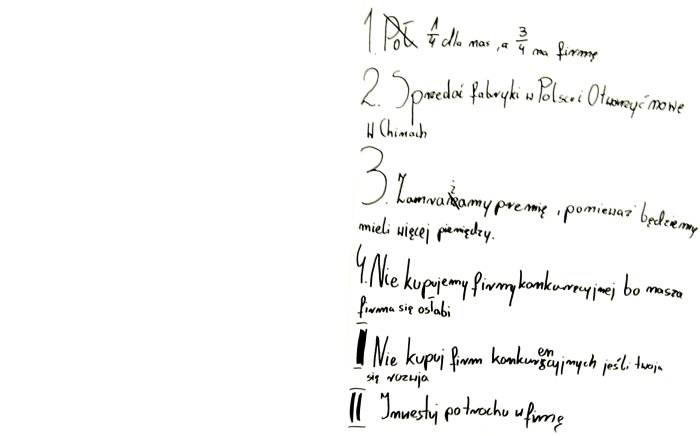 1. Pół 1/4 dla nas, a 3/4 na firmę
2. Sprzedać fabryki w Polsce i Otworzyć nowe
W Chinach
3. Zamrażamy premię, ponieważ będziemy
mieli więcej pieniędzy.
4. Nie kupujemy firmy konkurecyjnej bo nasza
firma się osłabi
I Nie kupuj firm konkurencyjnych jeśli twoja
się rozwija
II Inwestuj po trochu w firmę